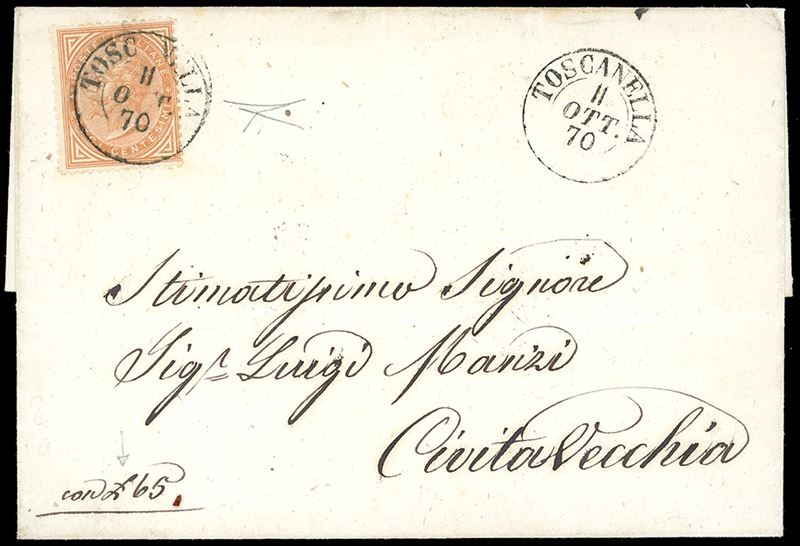 POSTE ITALIANE
CENTESIMI
TOSCANELLA
11
OTT.
70
TOSCANELLA
11
OTT.
70
Stimatissimo Signore
Sigr. Luigi Manzi
CivitaVecchia
con £ 65